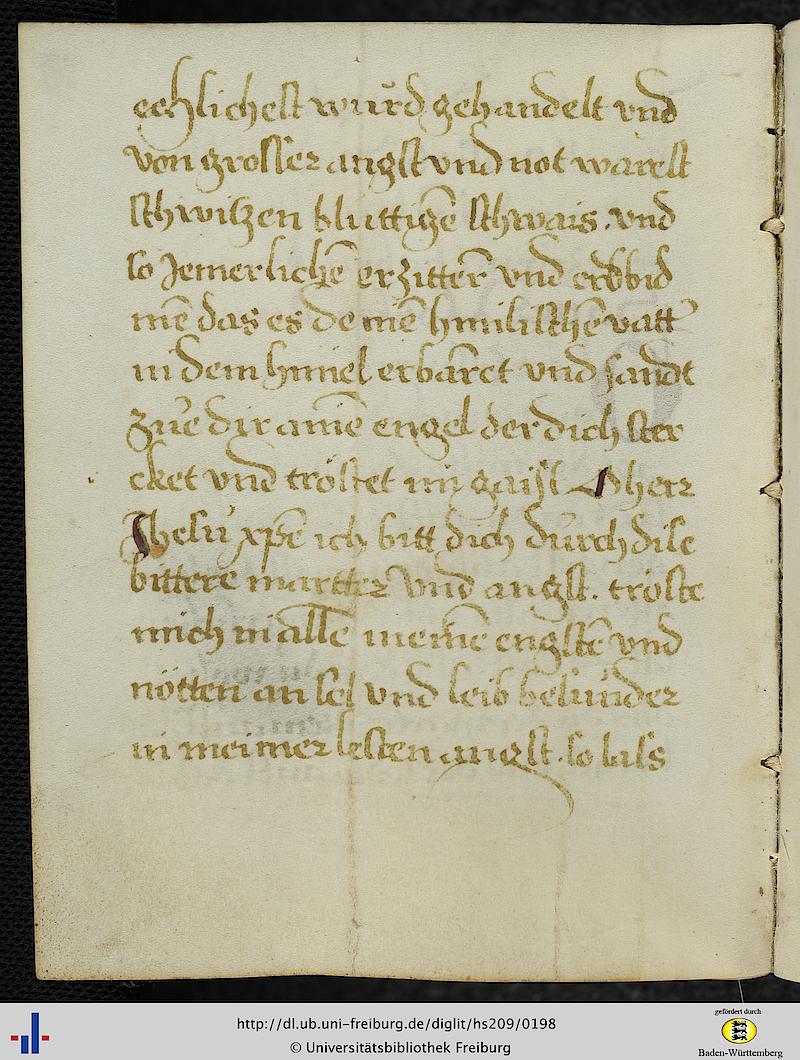 echlichest wurd gehandelt vnd
von grosser angst vnd not warest
schwitzen bluttigē schwais. vnd
so Jemerlichē erzitterē vnd erdbid
mē das es deinē himlischē vatt'
in dem himel erbarēt vnd sandt
zue dir ainē engel der dich ster
cket vnd tröstet im gaist O herr
Jhesu xp̄e ich bitt dich durch dise
bittere martter vnd angst. tröste
mich in allē meinē engstē vnd
nötten an sel vnd leib besunder
in meiner lesten angst. so lass
http://dl.ub.uni-freiburg.de/diglit/hs209/0198
© Universitätsbibliothek Freiburg
gefördert durch
Baden-Württemberg